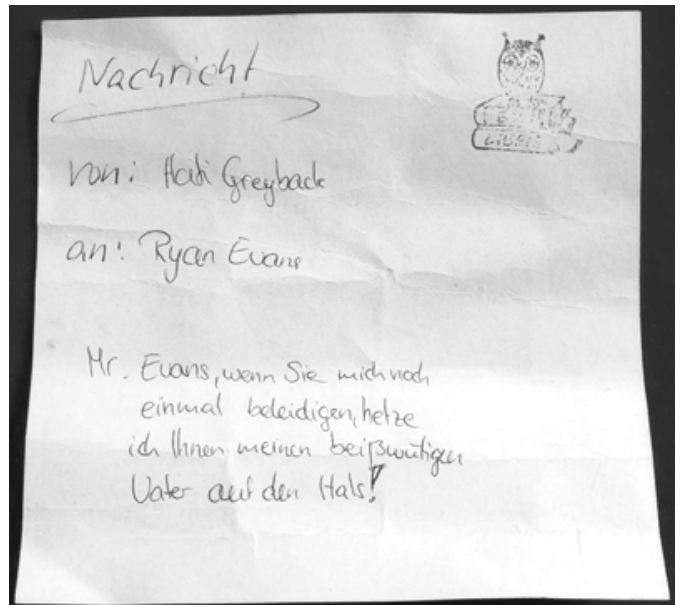 Nachricht
EX
LIBRIS
von: Hati Greyback
an: Ryan Evans
Mr. Evans, wenn Sie mich noch
einmal beleidigen, hetze
ich Ihnen meinen beißwütigen
Vater auf den Hals!